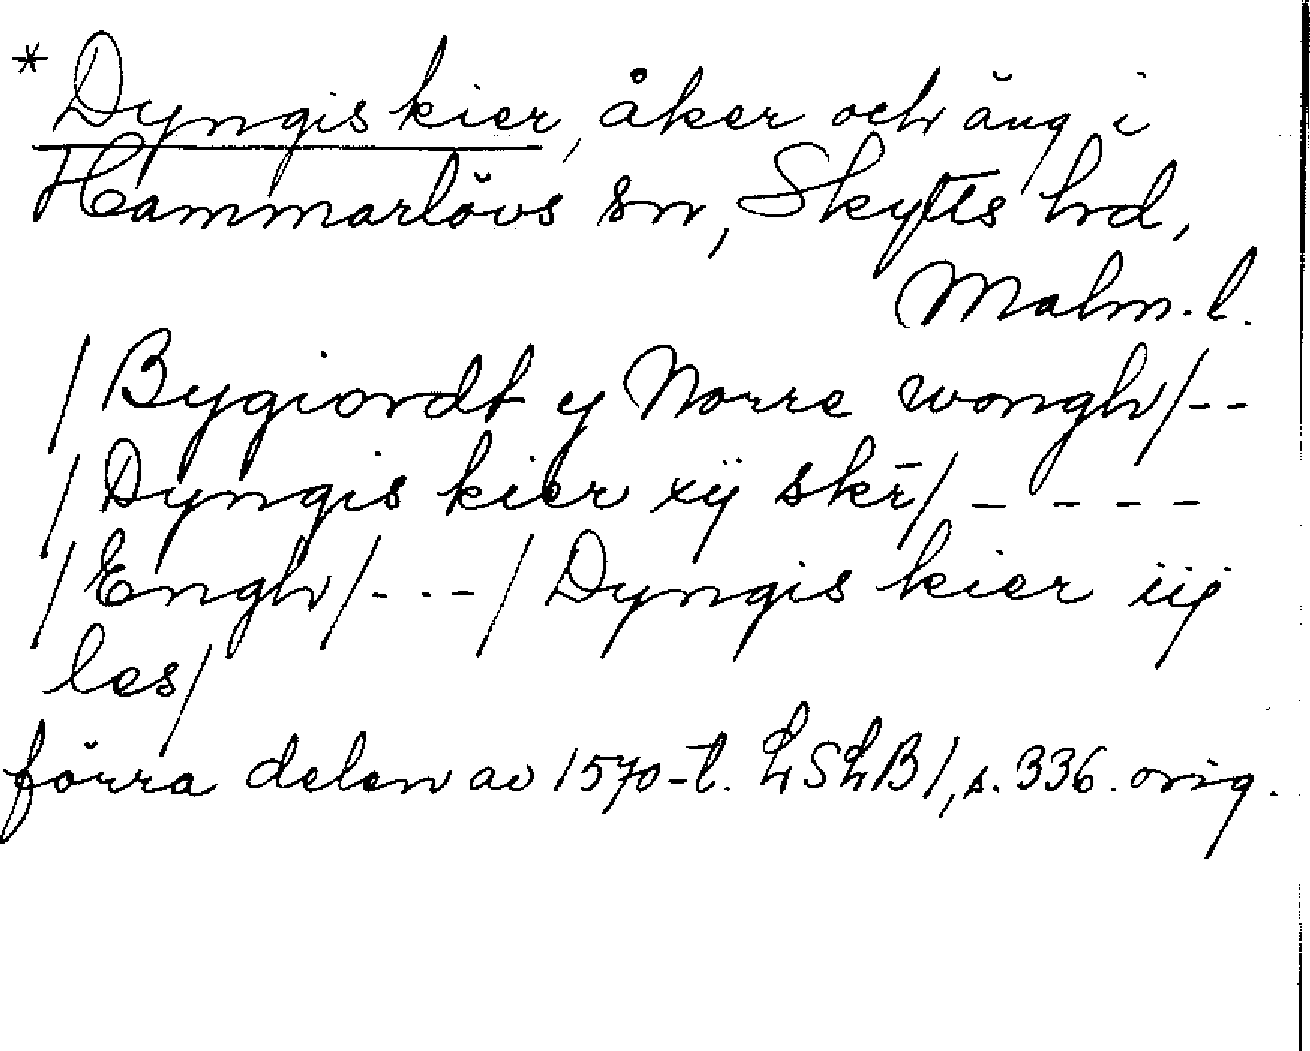 * Dyngis kier, åker och äng i
Hammarlövs sn, Skytts hd,
Malm. l.
/Bygiordt y Norre wongh/--
/Dyngis kier xÿ skr̄/ - - - -
/Engh/---/Dyngis kier iij
les/
förra delen av 1570-t. LSLB1, s. 336. orig.